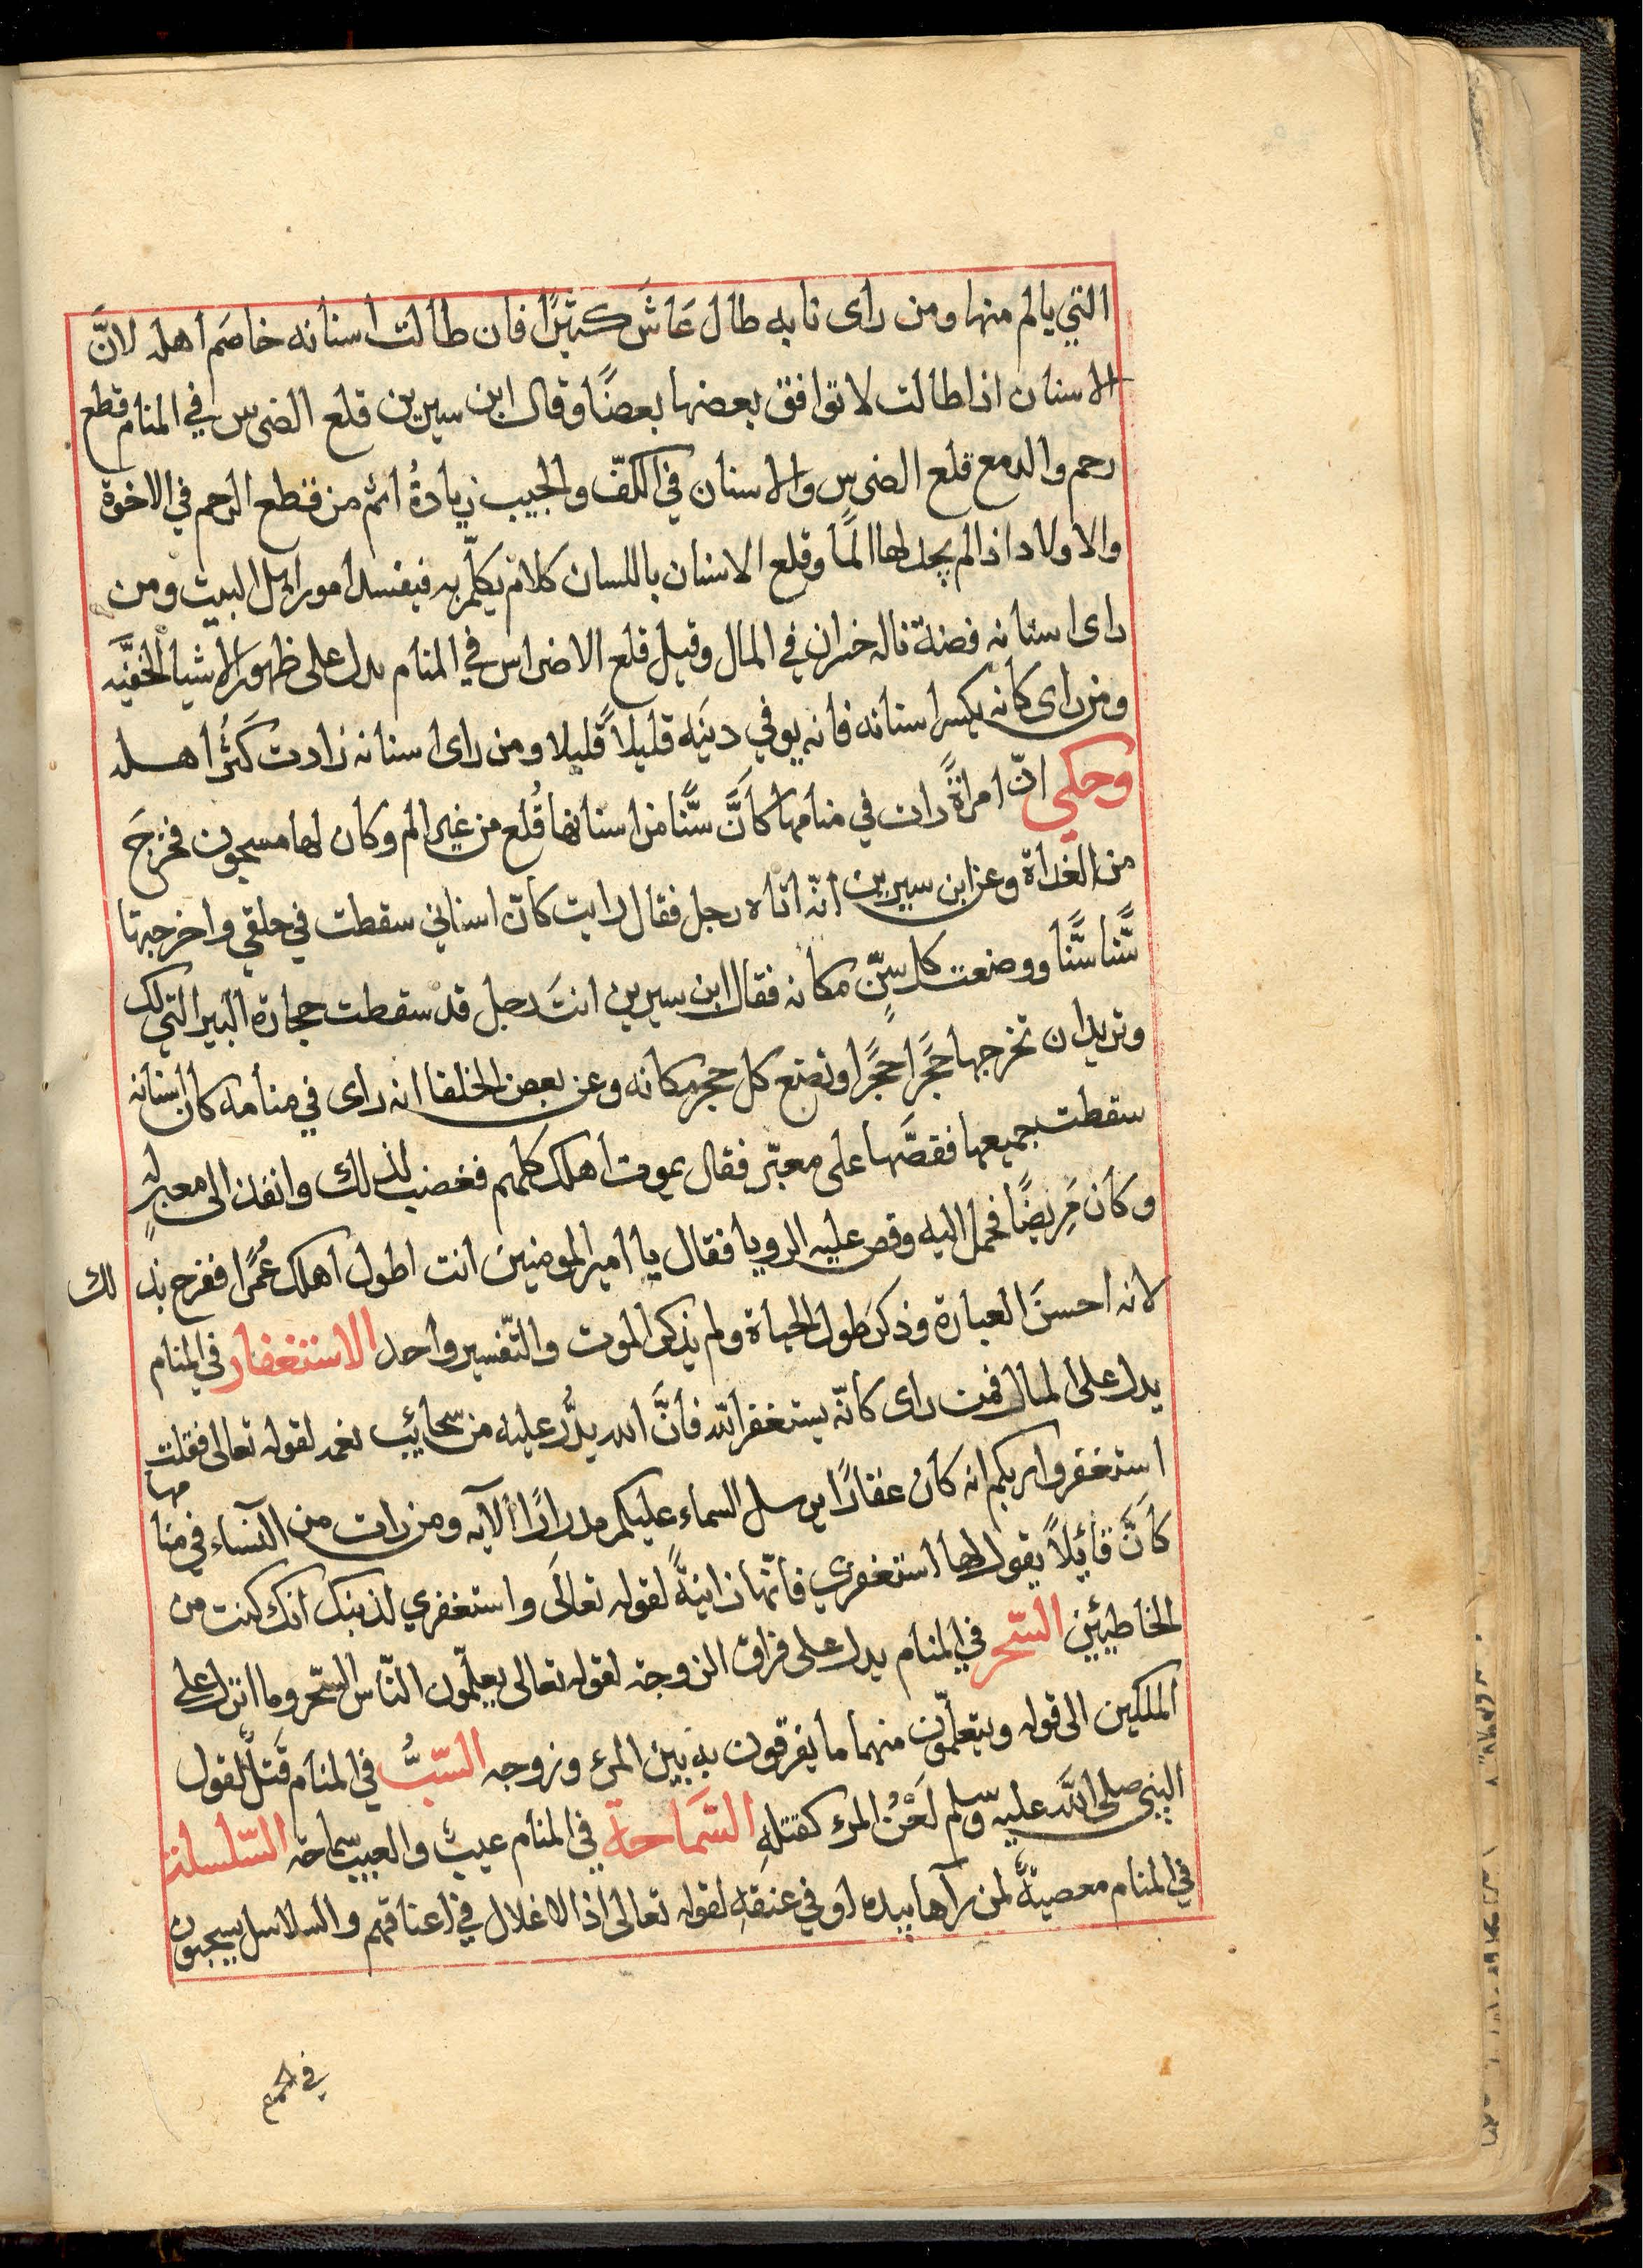 التي يالم منها ومن راى نابه طال عَاشَ كثيرًا فان طالت اسنانه خاصَم اهله لانَّ
الاسنان اذا طالت لا توافق بعضها بعضًا وقال ابن سيرين قلع الضرس في المنام قطع
رحم والدمع قلع الضرس والاسنان في الكفّ والجيب زيادةُ اثم من قطع الرحم في الاخوة
والاولاد اذا لم يجد لها المًا وقلع الاسنان باللسان كلام يكلّم به فيفسد امور اهل البيت ومن
راى اسنانه فضة ناله خسران في المال وقيل قلع الاضراس في المنام يدل على ظهور الاشيا الخفيَّه
ومن راى كانه يكسر اسنانه فانه يوفي دينَه قليلاً قليلا ومن راى اسنانه زادت كَثُر اهله
وحكي انّ امراةً رات في منامها كَانَّ سِّنًّا من اسنانها قُلع من غير الم وكان لها مسجون فخرجَ
من الغداة وعن ابن سيرين انّه اتاه رجل فقال رايت كانّ اسناني سقطت في حلقي واخرجتها
سِّنًّا سِّنًّا ووضعت كل سِنّ مكانه فقال ابن سيرين انتَ رجل قد سقطت حجارة البير التي لك
وتريد ان تخرجها حَجَرًا حَجَرًا وتضع كل حجر مكانه وعن بعض الخلفا انه راى في منامه كان اسنانه
سقطت جميعها فقصَّها على معبّر فقال يموت اهلك كلهم فغضب لذلك وانفذ الى معبر له
وكان مَرِيضًا فحمل اليه وقص عليه الرويا فقال يا امير المومنين انت اطول اهلك عُمرًا ففرح بذلك
لانه احسنَ العبارة وذكر طول الحياة ولم يذكر الموت والتّفسير واحد الاستغفار في المنام
يدل على المال فمن راى كانّه يستغفر الله فانَّ الله يدُّر عليه من سحائب نعمه لقوله تعالى فقلت
استغفروا ربكم انه كان غفارًا يرسل السماء عليكم مدرارًا الآيه ومن رات من النساء في منامها
كاَنَّ قائلاً يقول لها استغفري فانّها زانيةً لقوله تعالَى واستغفري لذنبك انك كنت من
الخاطيئين السّحر في المنام يدل على فراق الزوجة لقوله تعالى يعلّمون النّاس السّحر وما انزل على
الملكين الى قوله ويتعلّمون منهما ما يفرقون به بين المرء وزوجه السّبُّ في المنام قَتلٌ لقول
النبي صلى اللّه عليه وسّلم لَعْنُ المرء كقتلهِ السَّمَاحة في المنام عيبٌ والعيب سماحة السّلسلة
في المنام معصيةٌ لمن رآها بيده او في عنقهِ لقوله تعالى اذ الاغلال في اعناقهم والسلاسل يسحبون